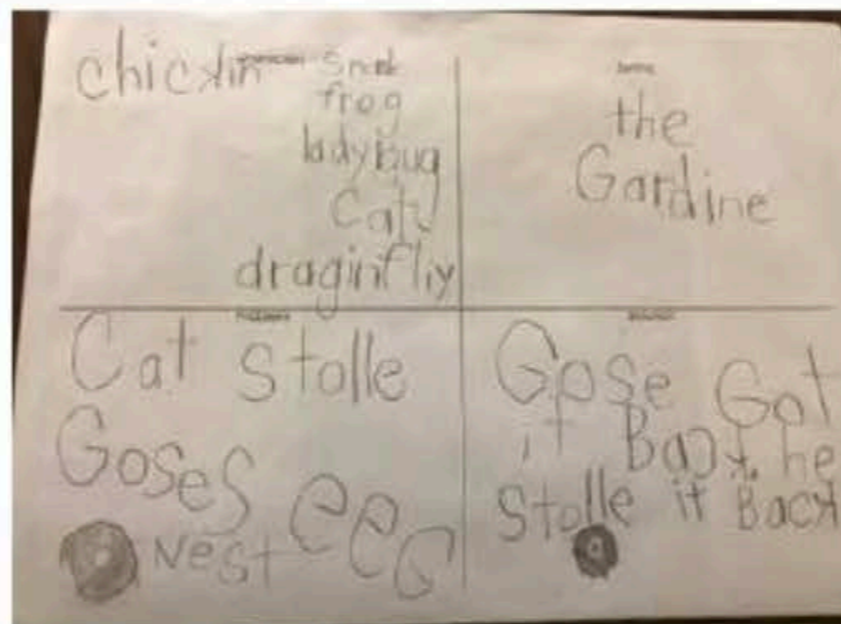 chickin
Snak
frog
ladybug
Cat
draginfliy
the
Gardine
Problem
Cat Stolle
Goses eeG
Nest
Solution
Gose Got
it Back. he
Stolle it Back